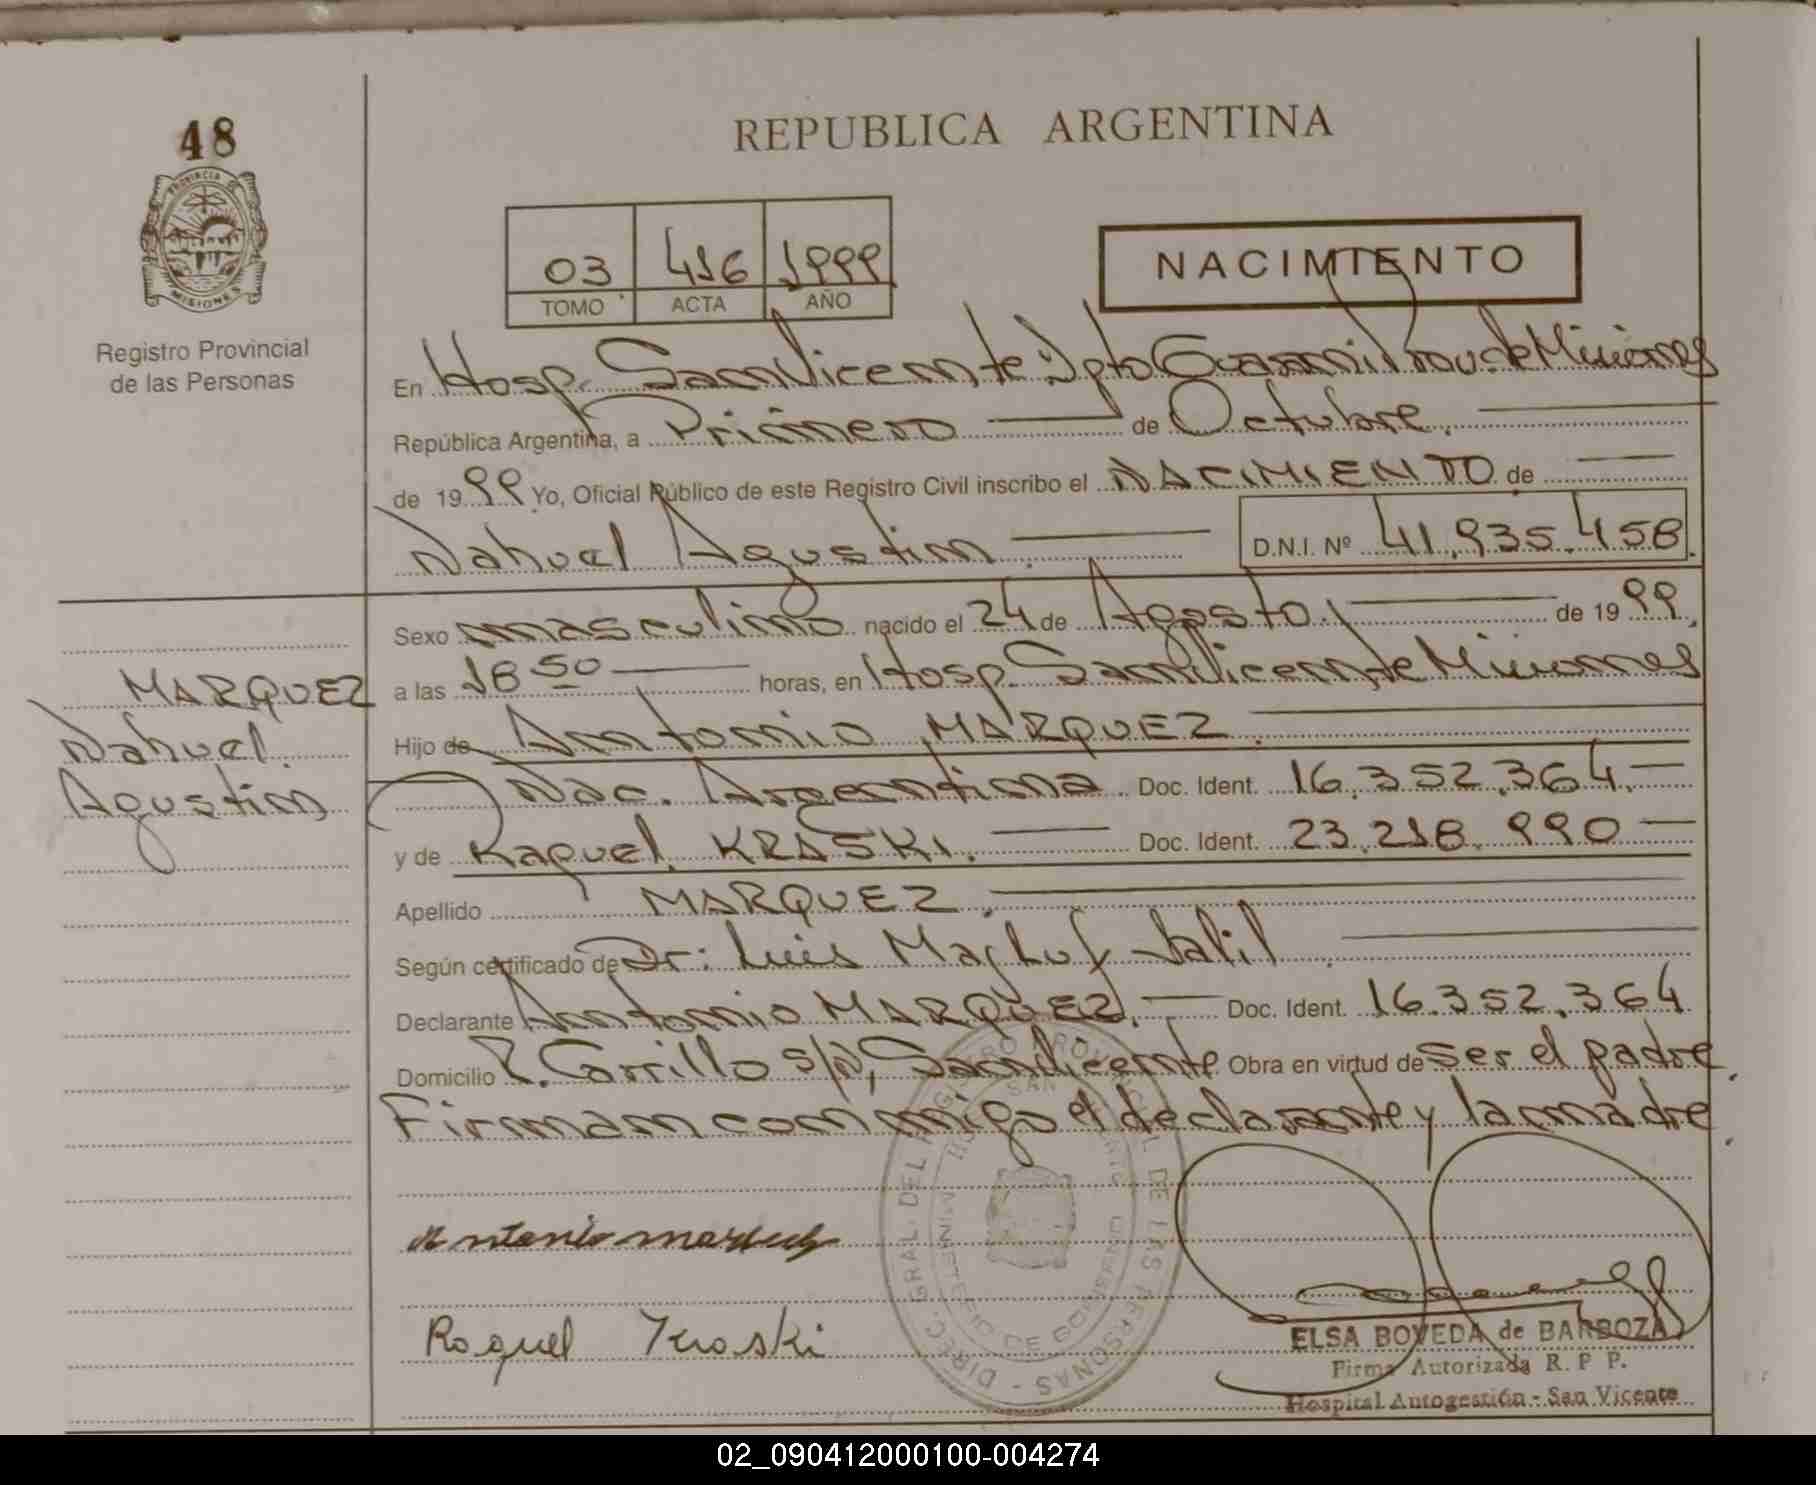 48
PROVINCIA DE
MISIONES
Registro Provincial
de las Personas
REPUBLICA ARGENTINA
03 416 1999
TOMO ACTA AÑO
NACIMIENTO
En Hosp. San Vicente Dpto Guaraní Prov. de Misiones
República Argentina, a Primero de Octubre.
de 1999 Yo, Oficial Público de este Registro Civil inscribo el NACIMIENTO de
Nahuel Agustin D.N.I. Nº 41.935.458
Sexo masculino nacido el 24 de Agosto. de 1999.
a las 18 50 horas, en Hosp. San Vicente Misiones
Hijo de Antonio MARQUEZ.
Nac. Argentina. Doc. Ident. 16.352.364.
y de Raquel KRASKI. Doc. Ident. 23.218.990
Apellido MARQUEZ.
Según certificado de Dr: Luis Jalil
Declarante Antonio MARQUEZ. Doc. Ident. 16.352.364
Domicilio R. Carrillo s/n, San Vicente. Obra en virtud de ser el padre.
Firman conmigo el declarante y la madre.
MARQUEZ
Nahuel
Agustin
DIREC. GRAL. DEL REGISTRO PROVINCIAL DE LAS PERSONAS
MINISTERIO DE GOBIERNO
Raquel Kraski
ELSA BOVEDA de BARBOZA
Firma Autorizada R. P. P.
Hospital Autogestión - San Vicente
02_090412000100-004274